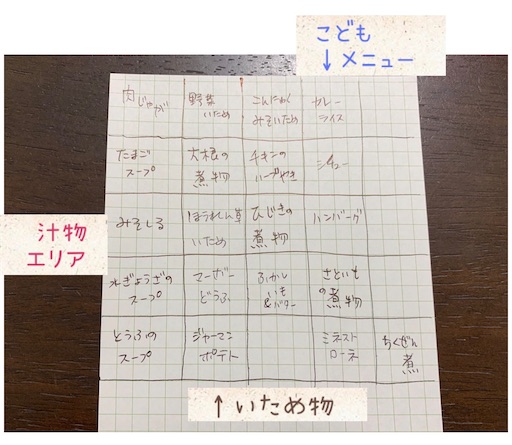 こども
↓メニュー
肉じゃが
野菜
いため
こんにゃく
みそいため
カレー
ライス
たまご
スープ
大根の
煮物
チキンの
ハーブやき
シチュー
汁物
エリア
みそしる
ほうれん草
いため
ひじきの
煮物
ハンバーグ
水ぎょうざの
スープ
マーボー
どうふ
ふかし
いも
&バター
さといも
の煮物
とうふの
スープ
ジャーマン
ポテト
ミネスト
ローネ
ちくぜん
煮
↑いため物